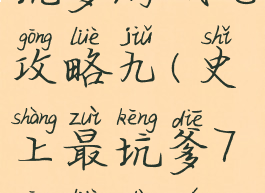 gōng lüè jiǔ shǐ
攻略九(史
shàng zuì kēng diē
上最坑爹7